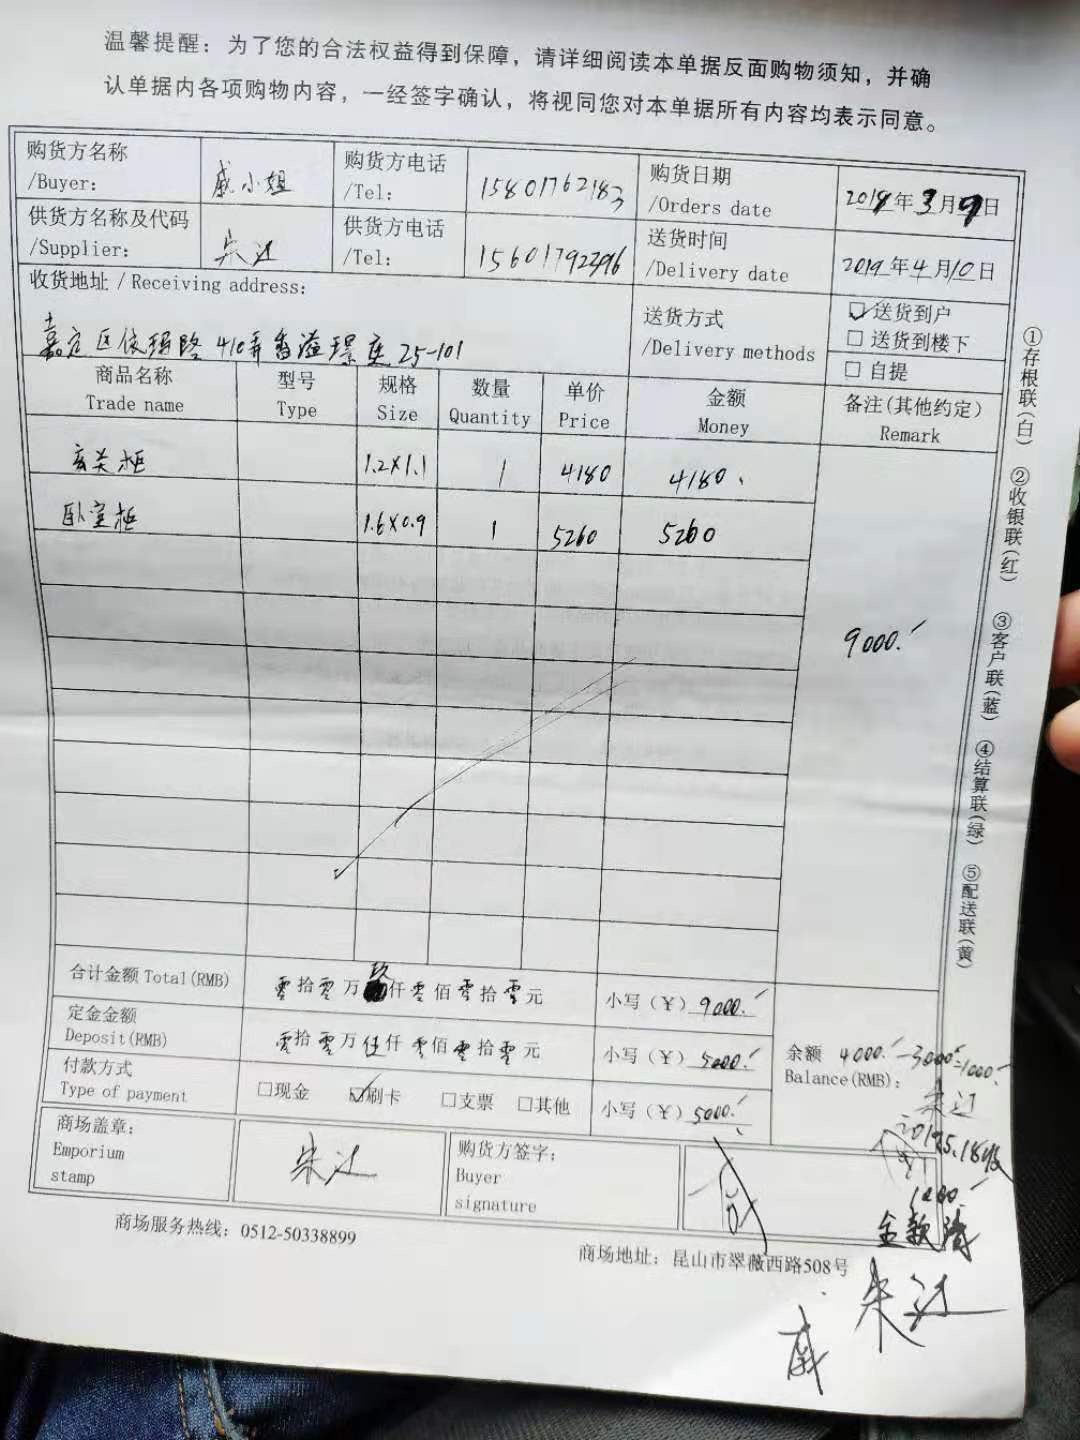 温馨提醒：为了您的合法权益得到保障，请详细阅读本单据反面购物须知，并确
认单据内各项购物内容，一经签字确认，将视同您对本单据所有内容均表示同意。
购货方名称 /Buyer： 戚小姐 购货方电话 /Tel： 15801762183 购货日期 /Orders date 2019年3月9日
供货方名称及代码 /Supplier： 宋达 供货方电话 /Tel： 送货时间 /Delivery date 2019年4月10日
收货地址 / Receiving address： 送货方式 /Delivery methods ☑送货到户
嘉定区依玛路410弄香溢璟庭25-101 □送货到楼下
□自提
商品名称 Trade name 型号 Type 规格 Size 数量 Quantity 单价 Price 金额 Money 备注(其他约定) Remark
玄关柜 1.2×1.1 1 4180 4180.
卧室柜 1.6×0.9 1 5260 5260
9000.
合计金额 Total(RMB) 零拾零万玖仟零佰零拾零元 小写（¥）9000.
定金金额 Deposit(RMB) 零拾零万伍仟零佰零拾零元 小写（¥）5000. 余额 Balance(RMB)： 4000.-3000=1000.
付款方式 Type of payment □现金 ☑刷卡 □支票 □其他 小写（¥）5000.
宋达
商场盖章： Emporium stamp 宋达 购货方签字： Buyer signature
1000.
全款清
商场服务热线：0512-50338899 商场地址：昆山市翠薇西路508号
宋达
戚
①存根联(白) ②收银联(红) ③客户联(蓝) ④结算联(绿) ⑤配送联(黄)